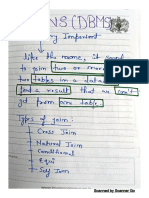 JOINS (DBMS)
Very Important
like the name, it used
to join two or more
two tables in a database
find a result that we can't
get from one table
Types of join:
→ Cross Join
→ Natural Join
→ Conditional
→ Equi
→ Self Join
Scanned by Scanner Go